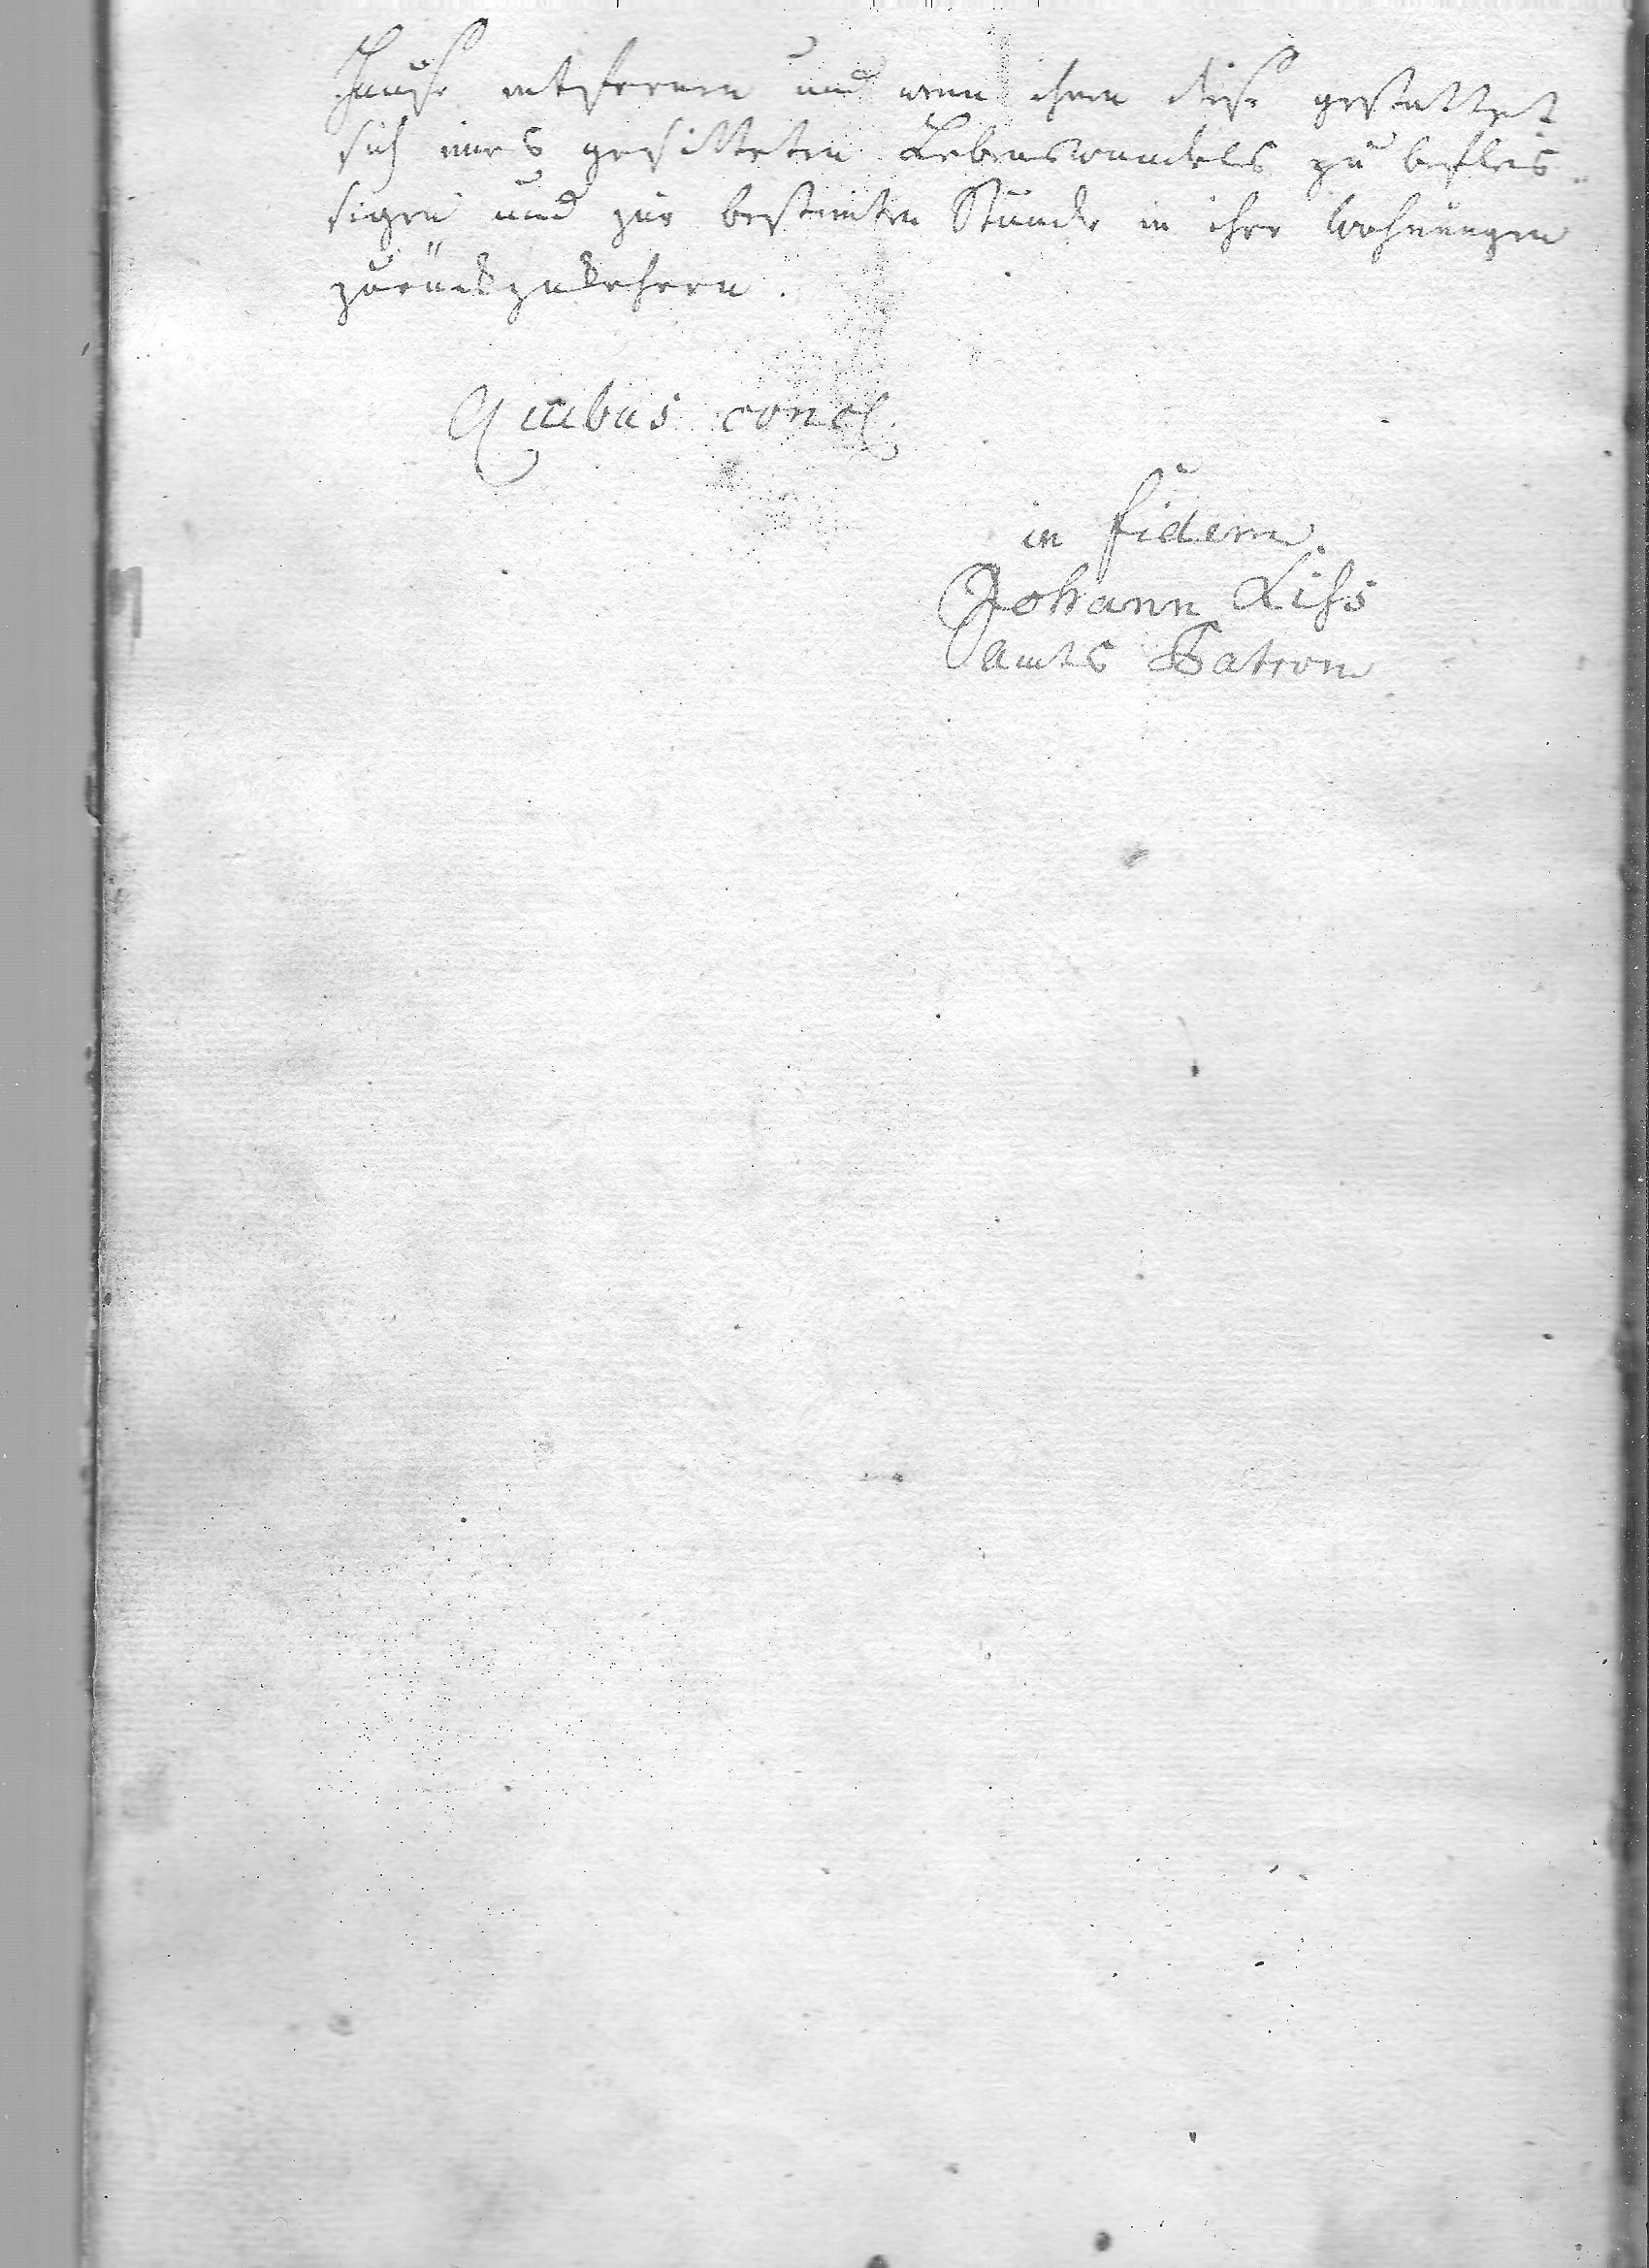 Hause entfernen und wenn ihnen diese gestattet
sich eines gesitteten Lebenswandels zu befleis-
sigen und zur bestimten Stunde in ihre Wohnungen
zurückzukehren.
Quibus concl.
in fidem
Johann Lißs
Amts Patron